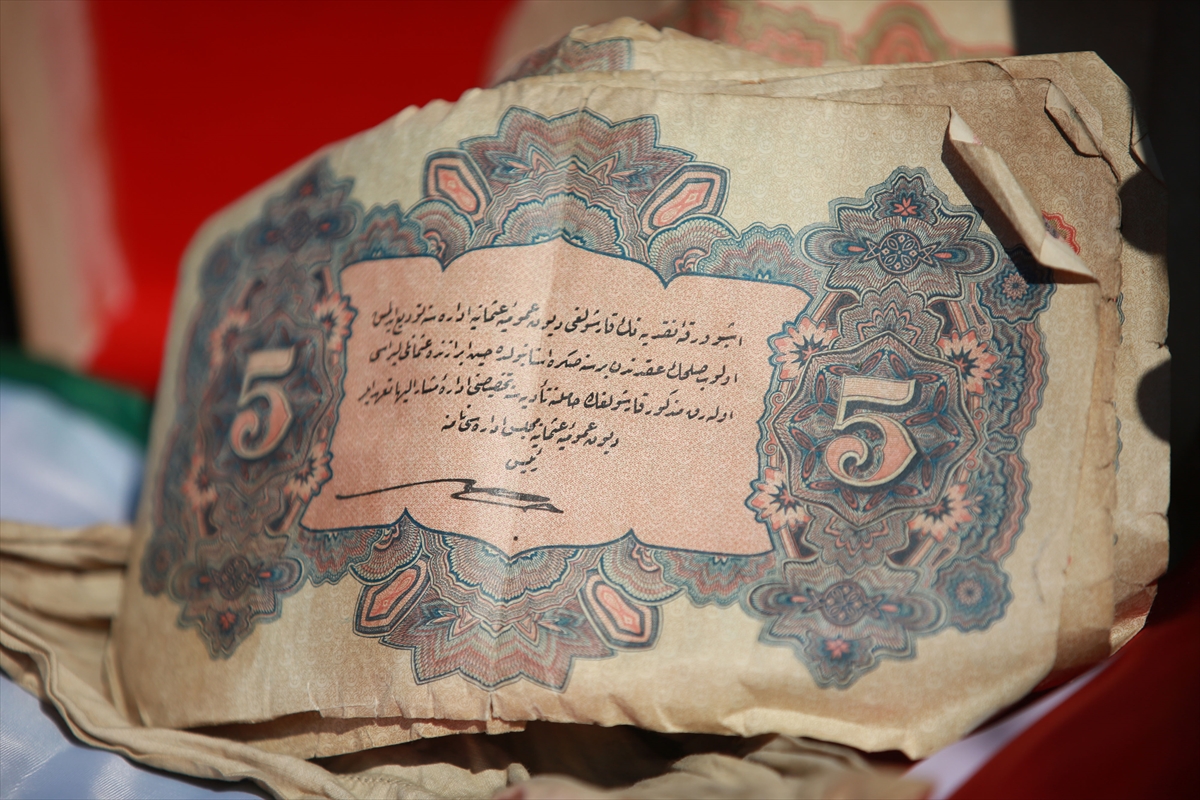 اشبو ورقهٔ نقدیه نك قارشولغی دیون عمومیهٔ عثمانیه اداره سنه تودیع ایدلمش
اولوب صلحك عقدندن بر سنه صكره استانبولده حین ابرازنده عثمانلی لیراسی
اوله رق مذكور قارشولغك حاملنه تأدیه سنه تخصیصی ادارهٔ مشار الیها تعهد ایدر
دیون عمومیهٔ عثمانیه مجلس اداره سی نامنه
رئیس
5
5